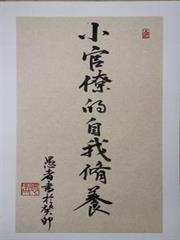 小官僚的自我脩養
愚者書於癸卯